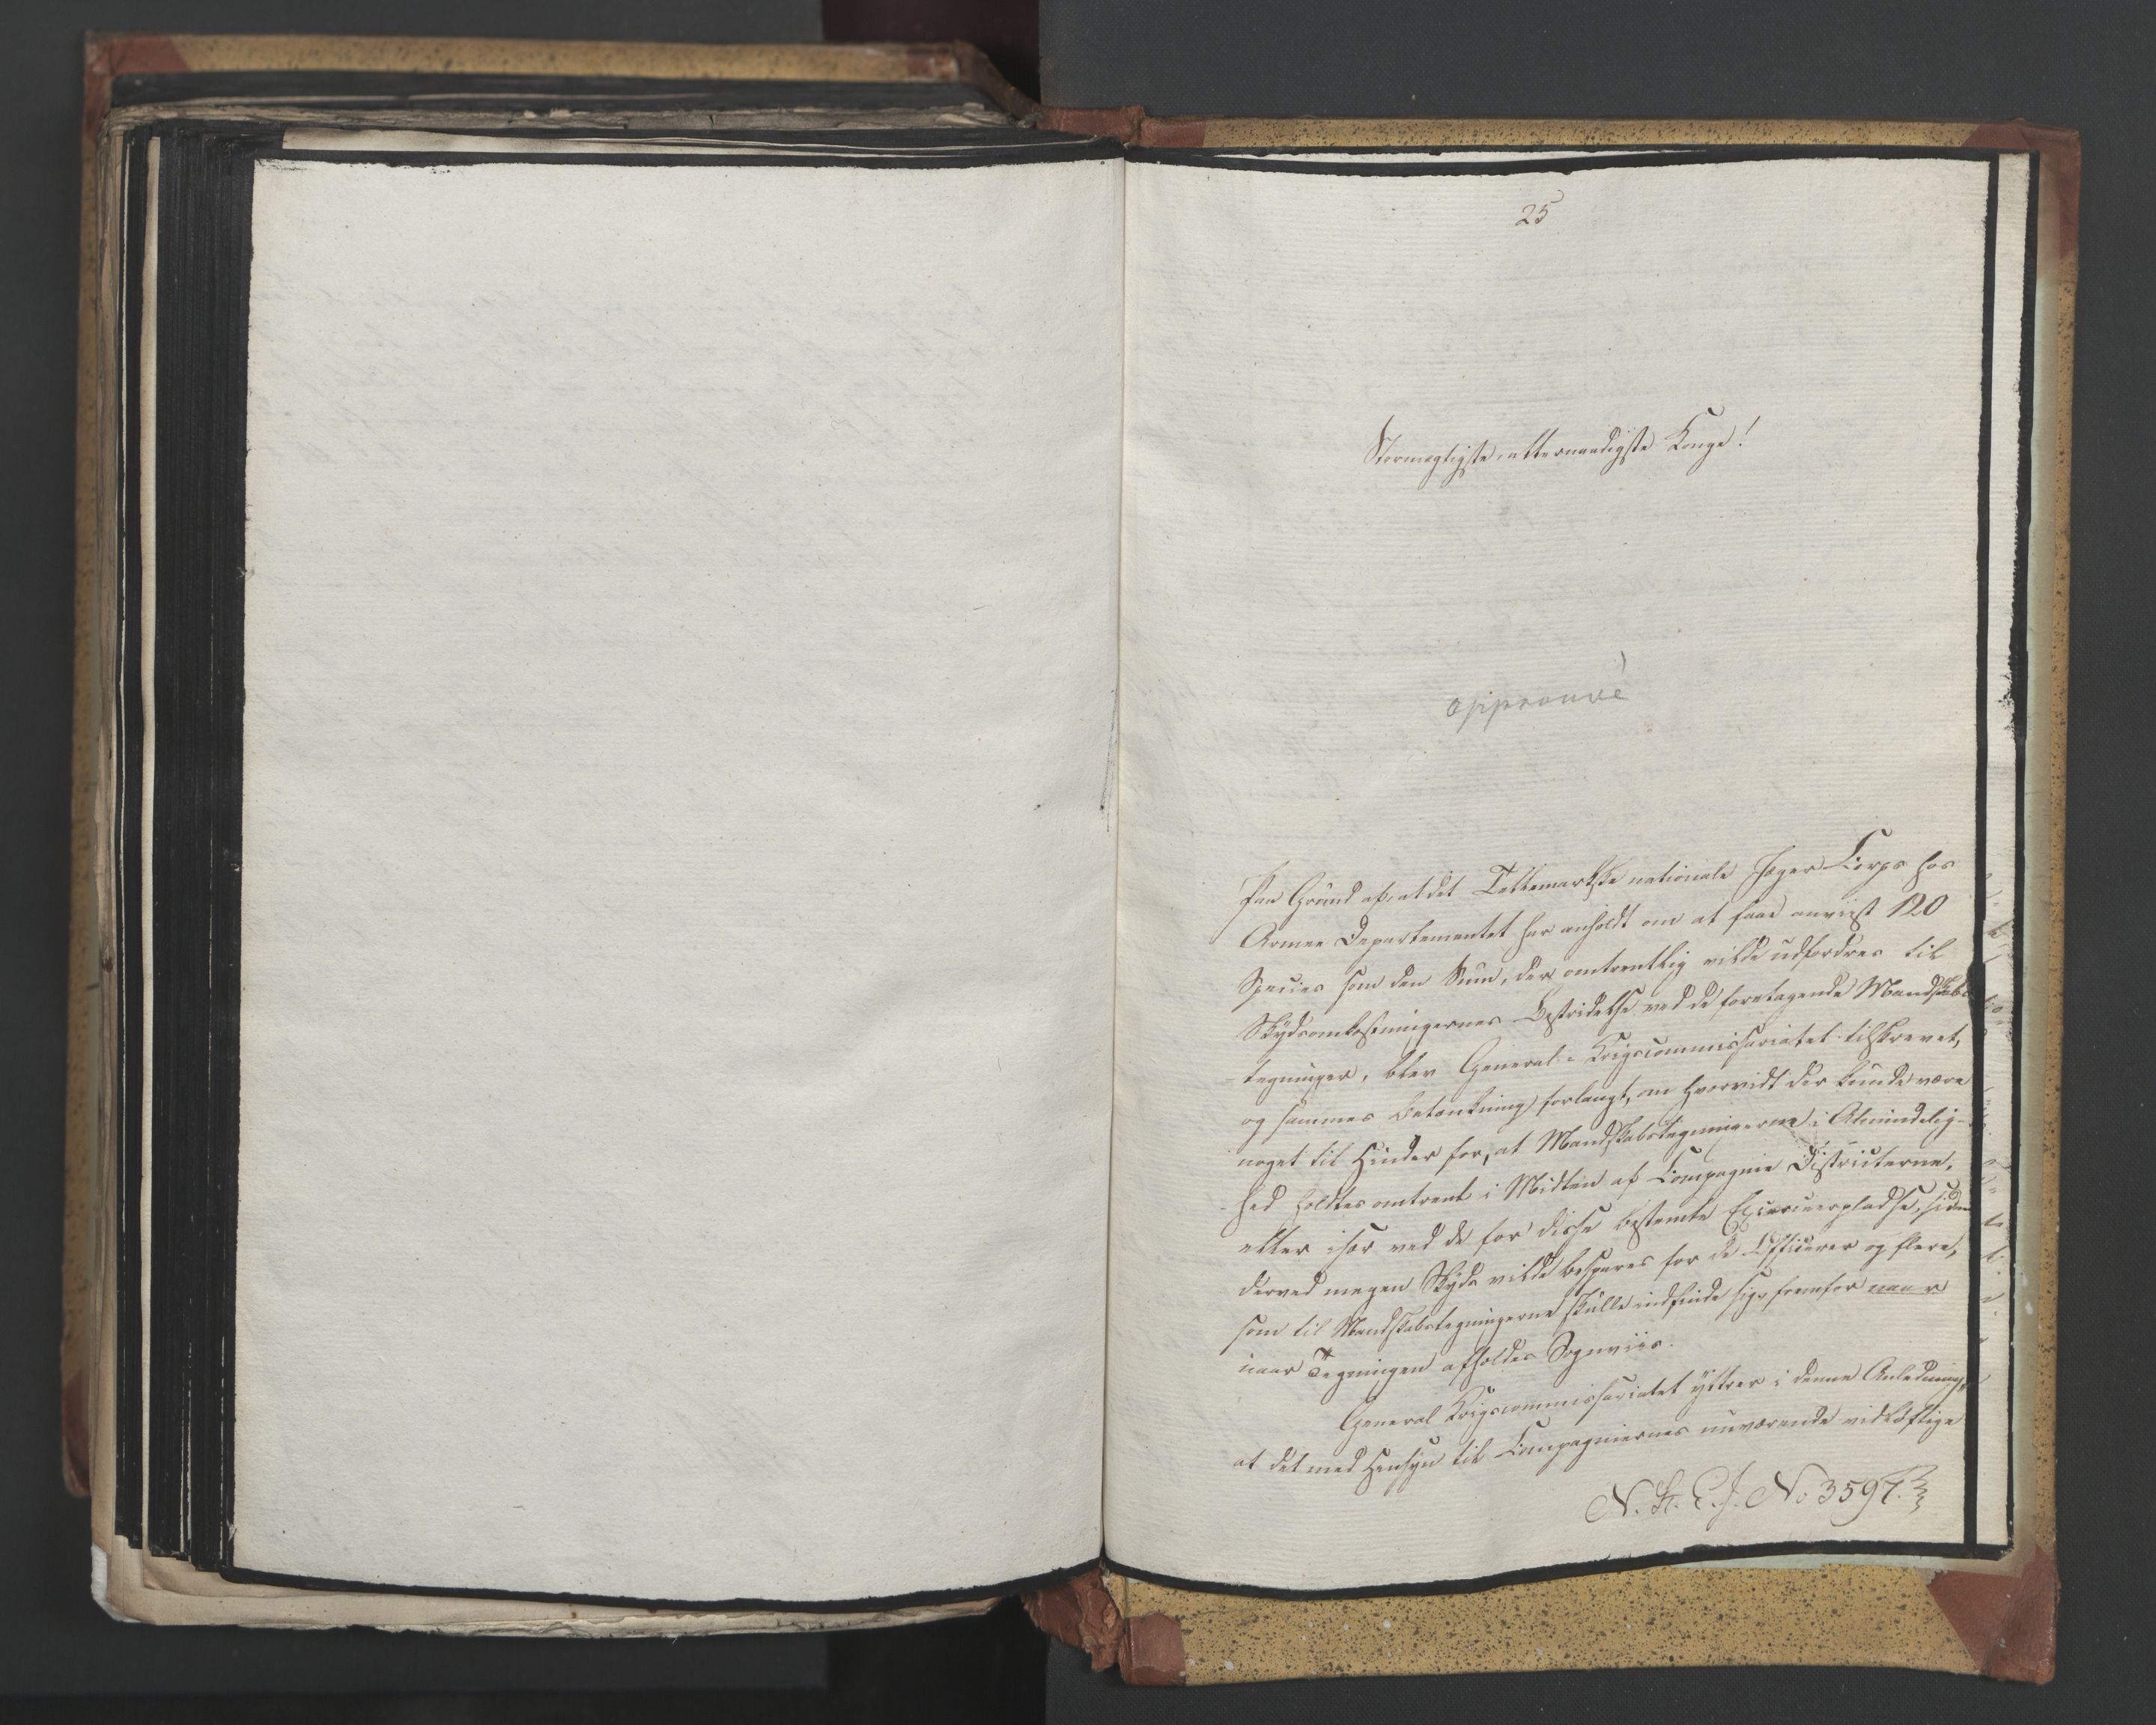 25
Stormægtigste, allernaadigste Konge!
approuvé
Paa Grund af, at det Tellemarkske nationale Jæger-Corps hos
Armee Departementet har anholdt om at faae anviist 120
Species som den Sum, der omtrentlig vilde udfordres til
Skydsomkostningernes Bestridelse ved de foretagende Mandskabs
-tegninger, blev General-Krigscommissariatet tilskrevet,
og sammes Betænkning forlangt, om hvorvidt der kunde være
noget til Hinder for, at Mandskabstegningerne i Almindelig-
-hed holdtes omtrent i Midten af Compagnie Districterne,
eller især ved de for disse bestemte Excerceerpladse, siden
derved megen Skyds vilde bespares for de Officerer og flere,
som til Mandskabstegningerne skulle indfinde sig, fremfor naar
naar Tegningen afholdes Sogneviis.
General Krigscommissariatet yttrer i denne Anledning,
at det med Hensyn til Compagniernes nuværende vidtløftige
N. St. E. J. No 3597.